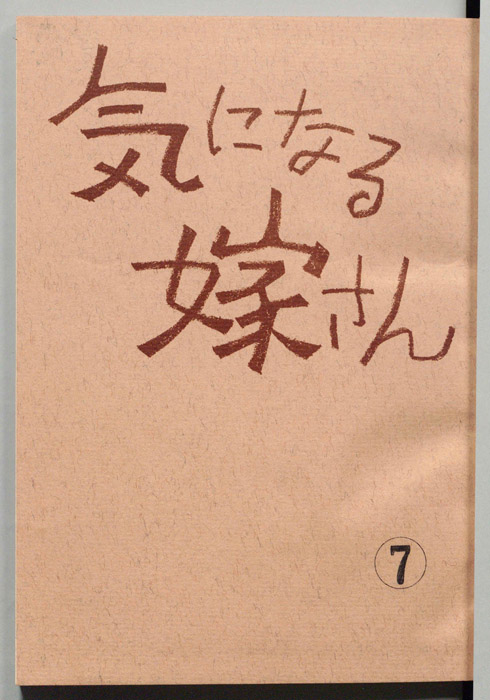 気になる
嫁さん
7